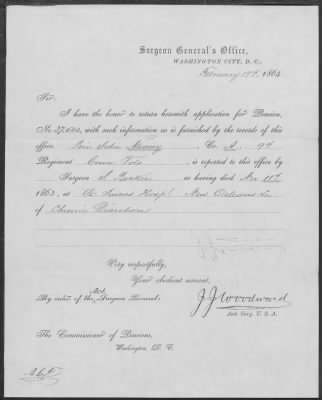 Surgeon General's Office,
WASHINGTON CITY, D. C.
February 1864
Sir:
I have the honor to return herewith application for Pension,
No. 37, with such information as is furnished by the records of this
office. Priv John Murray Co. A 9th
Regiment Conn Vols, is reported to this office by
Surgeon S. as having died Nov 11th
1862, at St. James Hosp! New Orleans La
of Chronic Diarrhoea
Very respectfully,
Your obedient servant,
By order of the Actg Surgeon General:
J. J. Woodward
Asst. Surg. U. S. A.
The Commissioner of Pensions,
Washington, D. C.